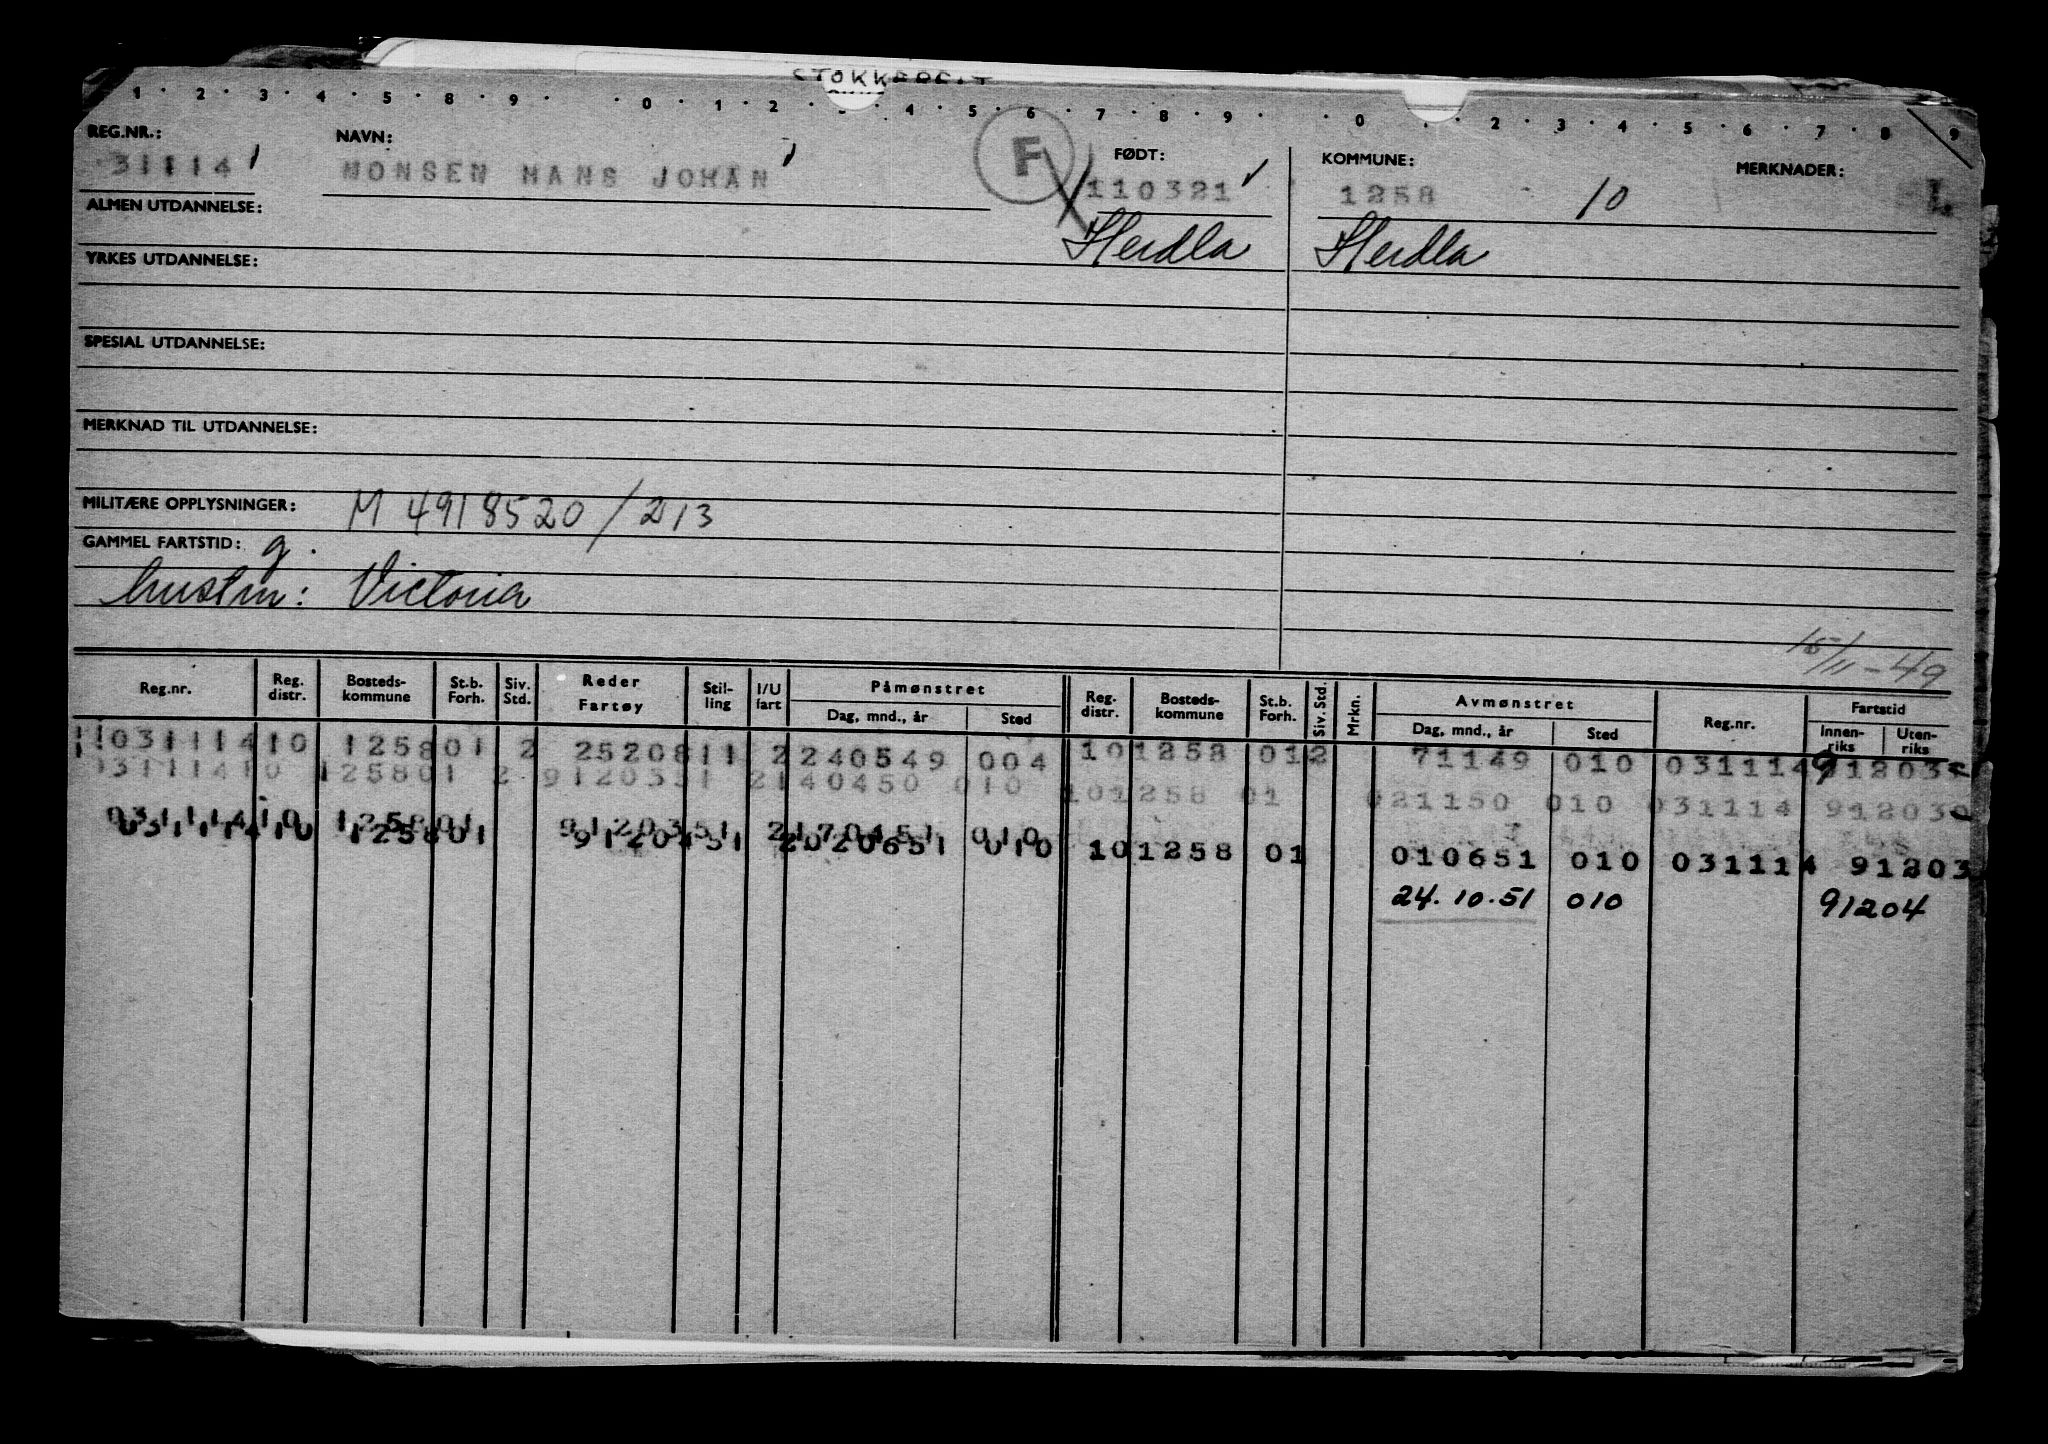 1 · 2 · 3 · 4 · 5 · 8 · 9 · · 0 · 1 · 2 · · 4 · 5 · 6 · 7 · 8 · 9 · · 0 · · 2 · 3 · 4 · 5 · 6 · 7 · 8 · 9
REG.NR.: NAVN: F FØDT: KOMMUNE: MERKNADER:
31114 MONSEN HANS JOHAN 110321 1258 10 L
ALMEN UTDANNELSE: Herdla Herdla
YRKES UTDANNELSE:
SPESIAL UTDANNELSE:
MERKNAD TIL UTDANNELSE:
MILITÆRE OPPLYSNINGER: M 4918520/213
GAMMEL FARTSTID: g.
hustru: Victoria
15/11-49
Reg.nr. Reg. distr. Bosteds-kommune St.b. Forh. Siv. Std. Reder Fartøy Stil-ling I/U fart Påmønstret Dag, mnd., år Sted Reg. distr. Bosteds-kommune St.b. Forh. Siv. Std. Mrkn. Avmønstret Dag, mnd., år Sted Reg.nr. Fartstid Innen-riks Uten-riks
031114 10 1258 01 2 25208 11 2 240549 004 10 1258 01 2 71149 010 031114 91203
031114 10 1258 01 2 91203 51 2 140450 010 10 1258 01 021150 010 031114 91203
031114 10 1258 01 91203 51 2 170451 010
031114 10 1258 01 91203 51 2 020651 010 10 1258 01 010651 010 031114 91203
24.10.51 010 91204